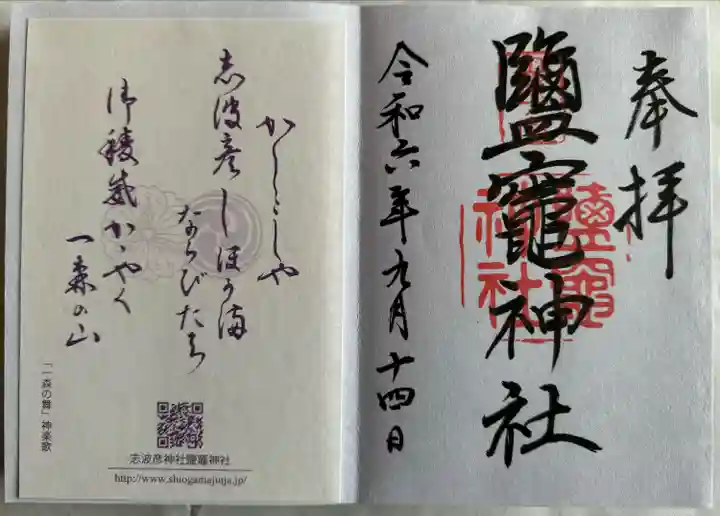 奉拝
鹽竈神社
令和六年九月十四日
かしこしや
志波彦しほがま
ならびたち
御稜威かゝやく
一森の山
「一森の舞」神楽歌
志波彦神社鹽竈神社
http://www.shiogamajinja.jp/